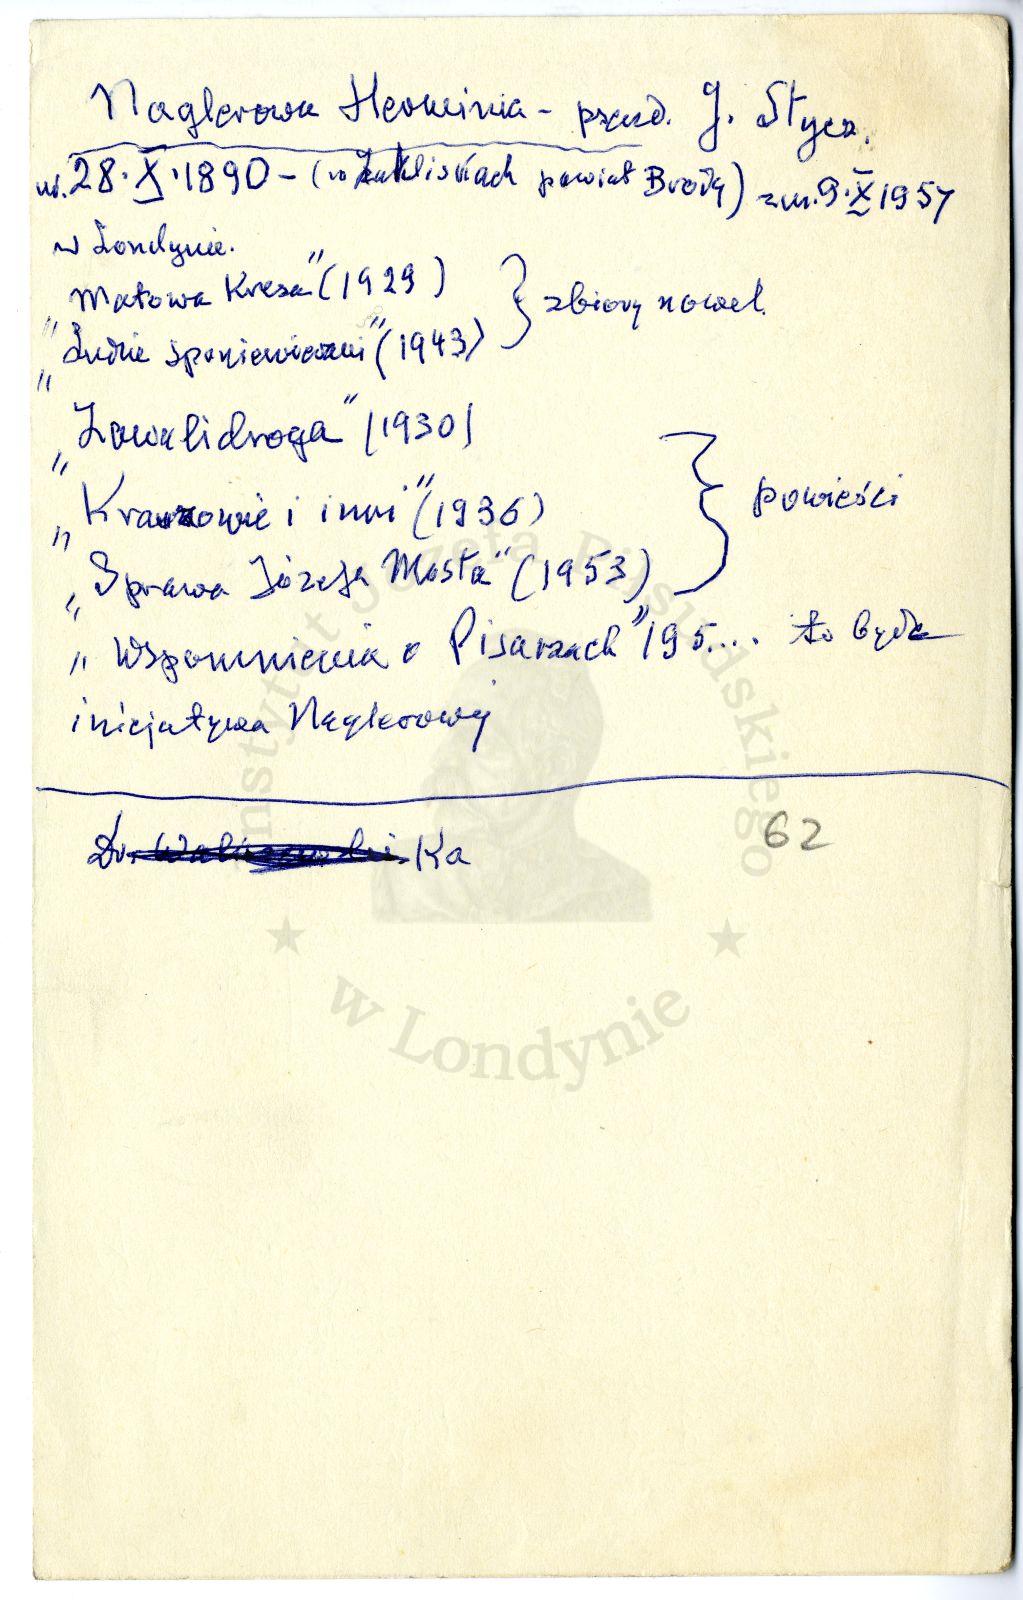 Naglerowa Herminia - pseud. J. Stycz.
ur. 28.X.1890 - (w Zakliskach powiat Brody) zm. 9.X 1957
w Londynie.
„Matowa Kresa" (1929) } zbiory nowel.
„Ludzie sponiewierani" (1943)
„Zawalidroga" (1930)
„Krauzowie i inni" (1936) } powieści
„Sprawa Józefa Mosta" (1953)
„Wspomnienia o Pisarzach" 195... to była
inicjatywa Naglerowej
Dr. Ka
62
Instytut Józefa Piłsudskiego
w Londynie